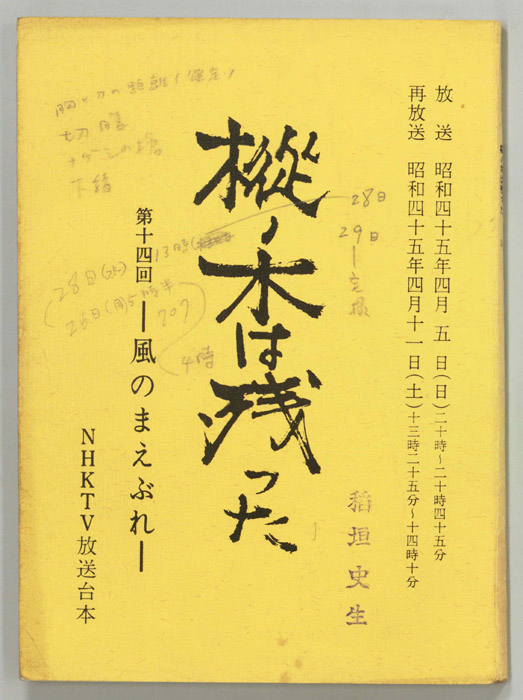 放送 昭和四十五年四月 五 日(日)二十時~二十時四十五分
再放送 昭和四十五年四月十一日(土)十三時二十五分~十四時十分
樅ノ木は残った
第十四回 ―風のまえぶれ―
NHKTV放送台本
稲垣史生
切腹
下緒
28日
29日
13時
28日(水)
26日(月)5時半
707
4時